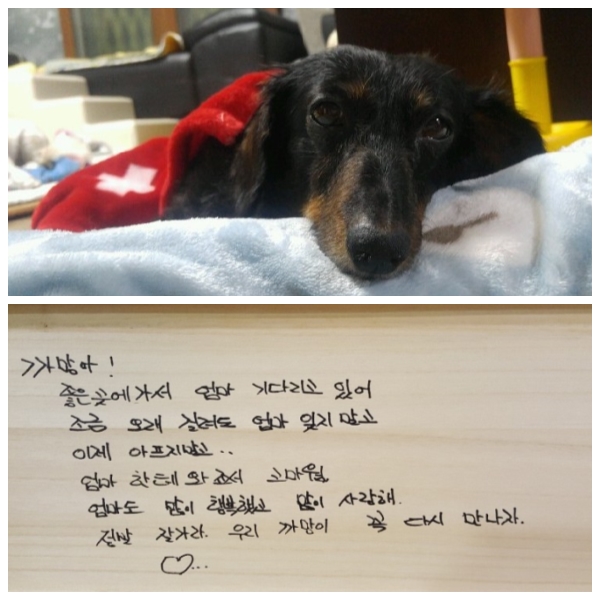 까망아!
좋은곳에가서 엄마 기다리고 있어
조금 오래 걸려도 엄마 잊지말고
이제 아프지말고..
엄마 한테 와줘서 고마워
엄마도 많이 행복했고 많이 사랑해.
정말 잘가라. 우리 까망이 꼭 다시 만나자.
♡...